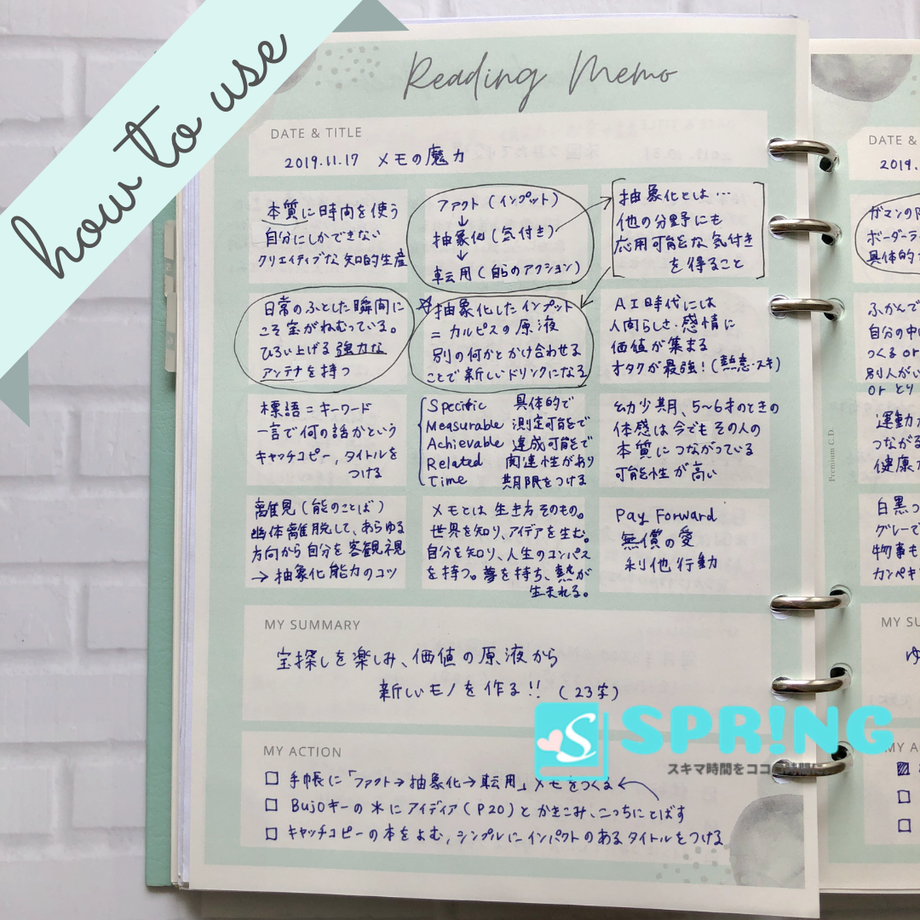 how to use
Reading Memo
DATE & TITLE
2019.11.17 メモの魔力
本質に時間を使う
自分にしかできない
クリエイティブな知的生産
ファクト(インプット)
↓
抽象化(気付き)
↓
転用(自らのアクション)
抽象化とは…
他の分野にも
応用可能な気付き
を得ること
日常のふとした瞬間に
こそ宝がねむっている。
ひろい上げる強力な
アンテナを持つ
☆抽象化したインプット
=カルピスの原液
別の何かとかけ合わせる
ことで新しいドリンクになる
AI時代には
人間らしさ・感情に
価値が集まる
オタクが最強!(熱意・スキ)
標語=キーワード
一言で何の話かという
キャッチコピー、タイトルを
つける
Specific 具体的で
Measurable 測定可能で
Achievable 達成可能で
Related 関連性があり
Time 期限をつける
幼少期、5~6才のときの
体感は今でもその人の
本質につながっている
可能性が高い
離見(能のことば)
幽体離脱して、あらゆる
方向から自分を客観視
→抽象化能力のコツ
メモとは生き方そのもの。
世界を知り、アイデアを生む。
自分を知り、人生のコンパス
を持つ。夢を持ち、熱が
生まれる。
Pay Forward
無償の愛
利他行動
MY SUMMARY
宝探しを楽しみ、価値の原液から
新しいモノを作る!!(23字)
MY ACTION
手帳に「ファクト→抽象化→転用」メモをつくる
BuJoキーの木にアイディア(P20)とかきこみ、こっちにとばす
キャッチコピーの本をよむ,シンプルにインパクトのあるタイトルをつける
S SPR!NG
スキマ時間をココ
DATE &
2019.
Premium C.D.
ふかんで
自分の中
つくる or
別人が
or とり
運動
つながる
健康
白黒
グレーで
物事も
カンペキ
MY SU
MY A